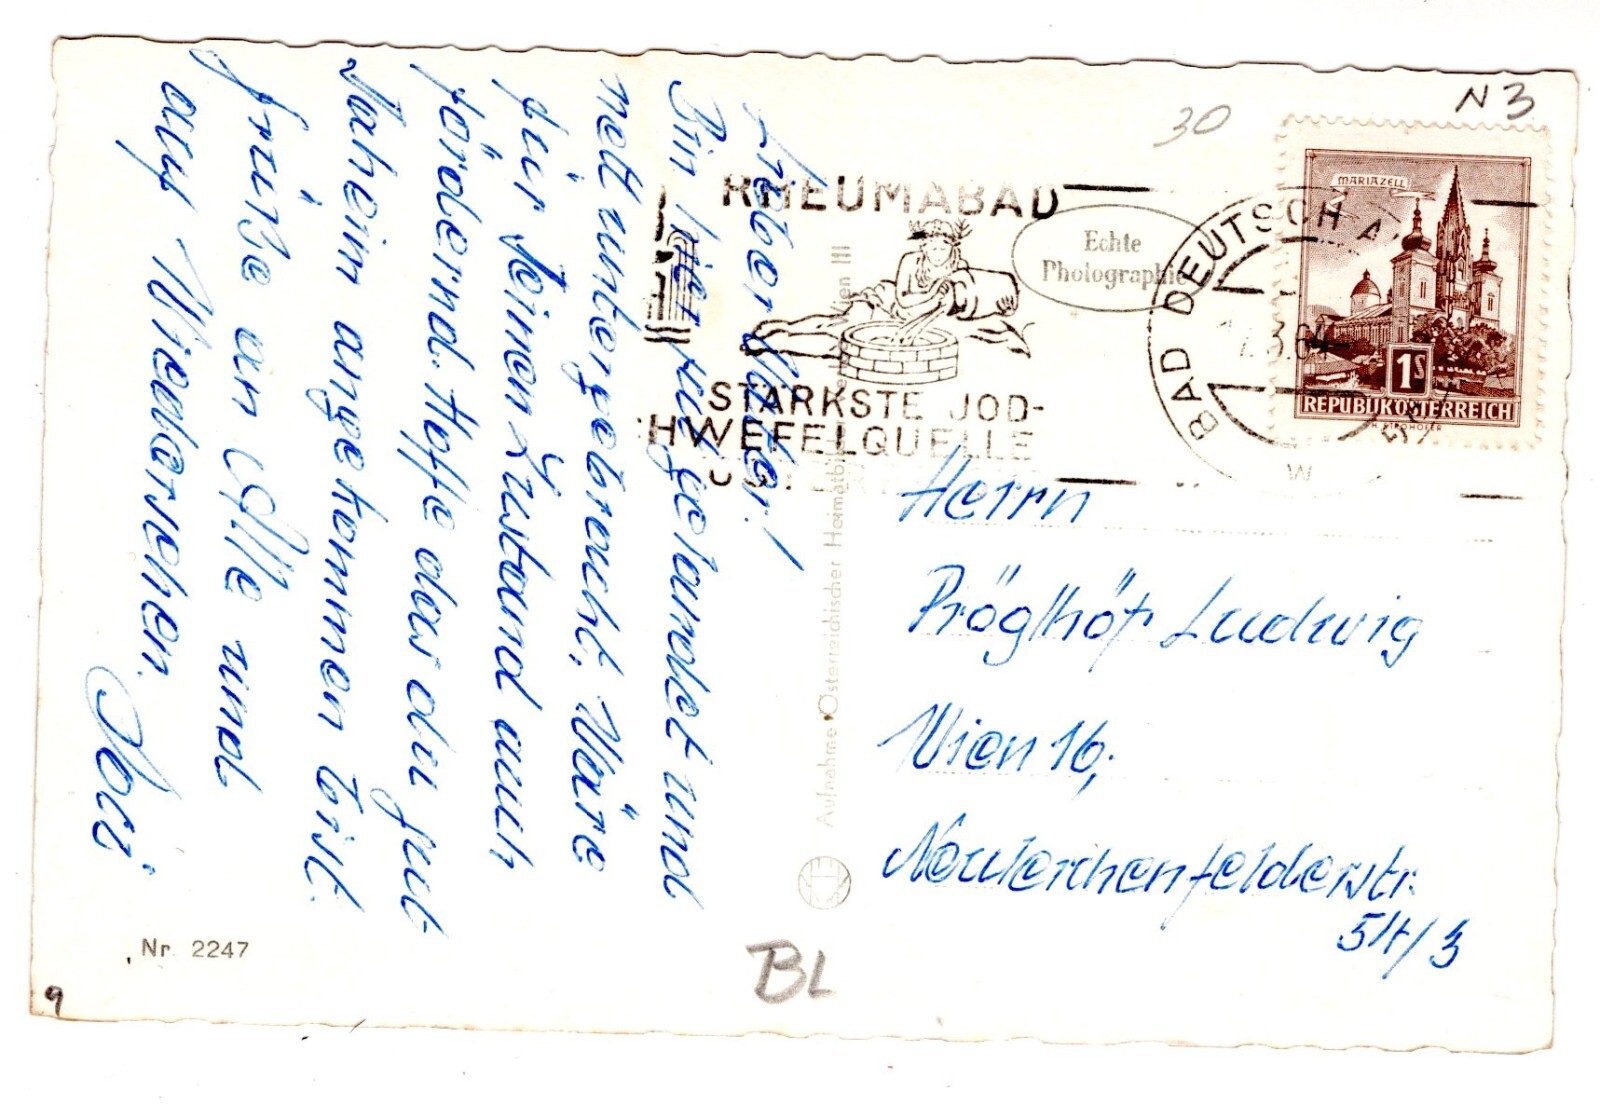 Lieber Vater!
Bin hier gut gelandet und
nett untergebracht. Wäre
für Deinen Zustand auch
fördernd. Hoffe das du gut
daheim angekommen bist.
Grüße an Alle und
auf Wiedersehen.
Nr. 2247
9
BL
Aufnahme Österreichischer Heimatbilderverlag Wien III
30
N3
RHEUMABAD
STÄRKSTE JOD-
HWEFELQUELLE
Echte
Photographie
BAD DEUTSCH A
W
MARIAZELL
1S
REPUBLIK ÖSTERREICH
Herrn
Pröglhöf Ludwig
Wien 16,
Neulerchenfelderstr.
54/3